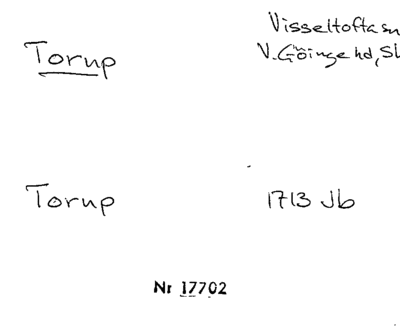 Torup
Visseltofta sn
V. Göinge hd, Sk
Torup
1713 Jb
Nr 17702